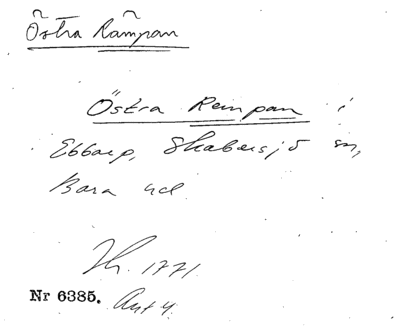 Östra Rämpan
Östra Rempan i
Ebbarp, Skabersjö sn,
Bara hd
Hr. 1771.
Nr 6385. Avt 4.